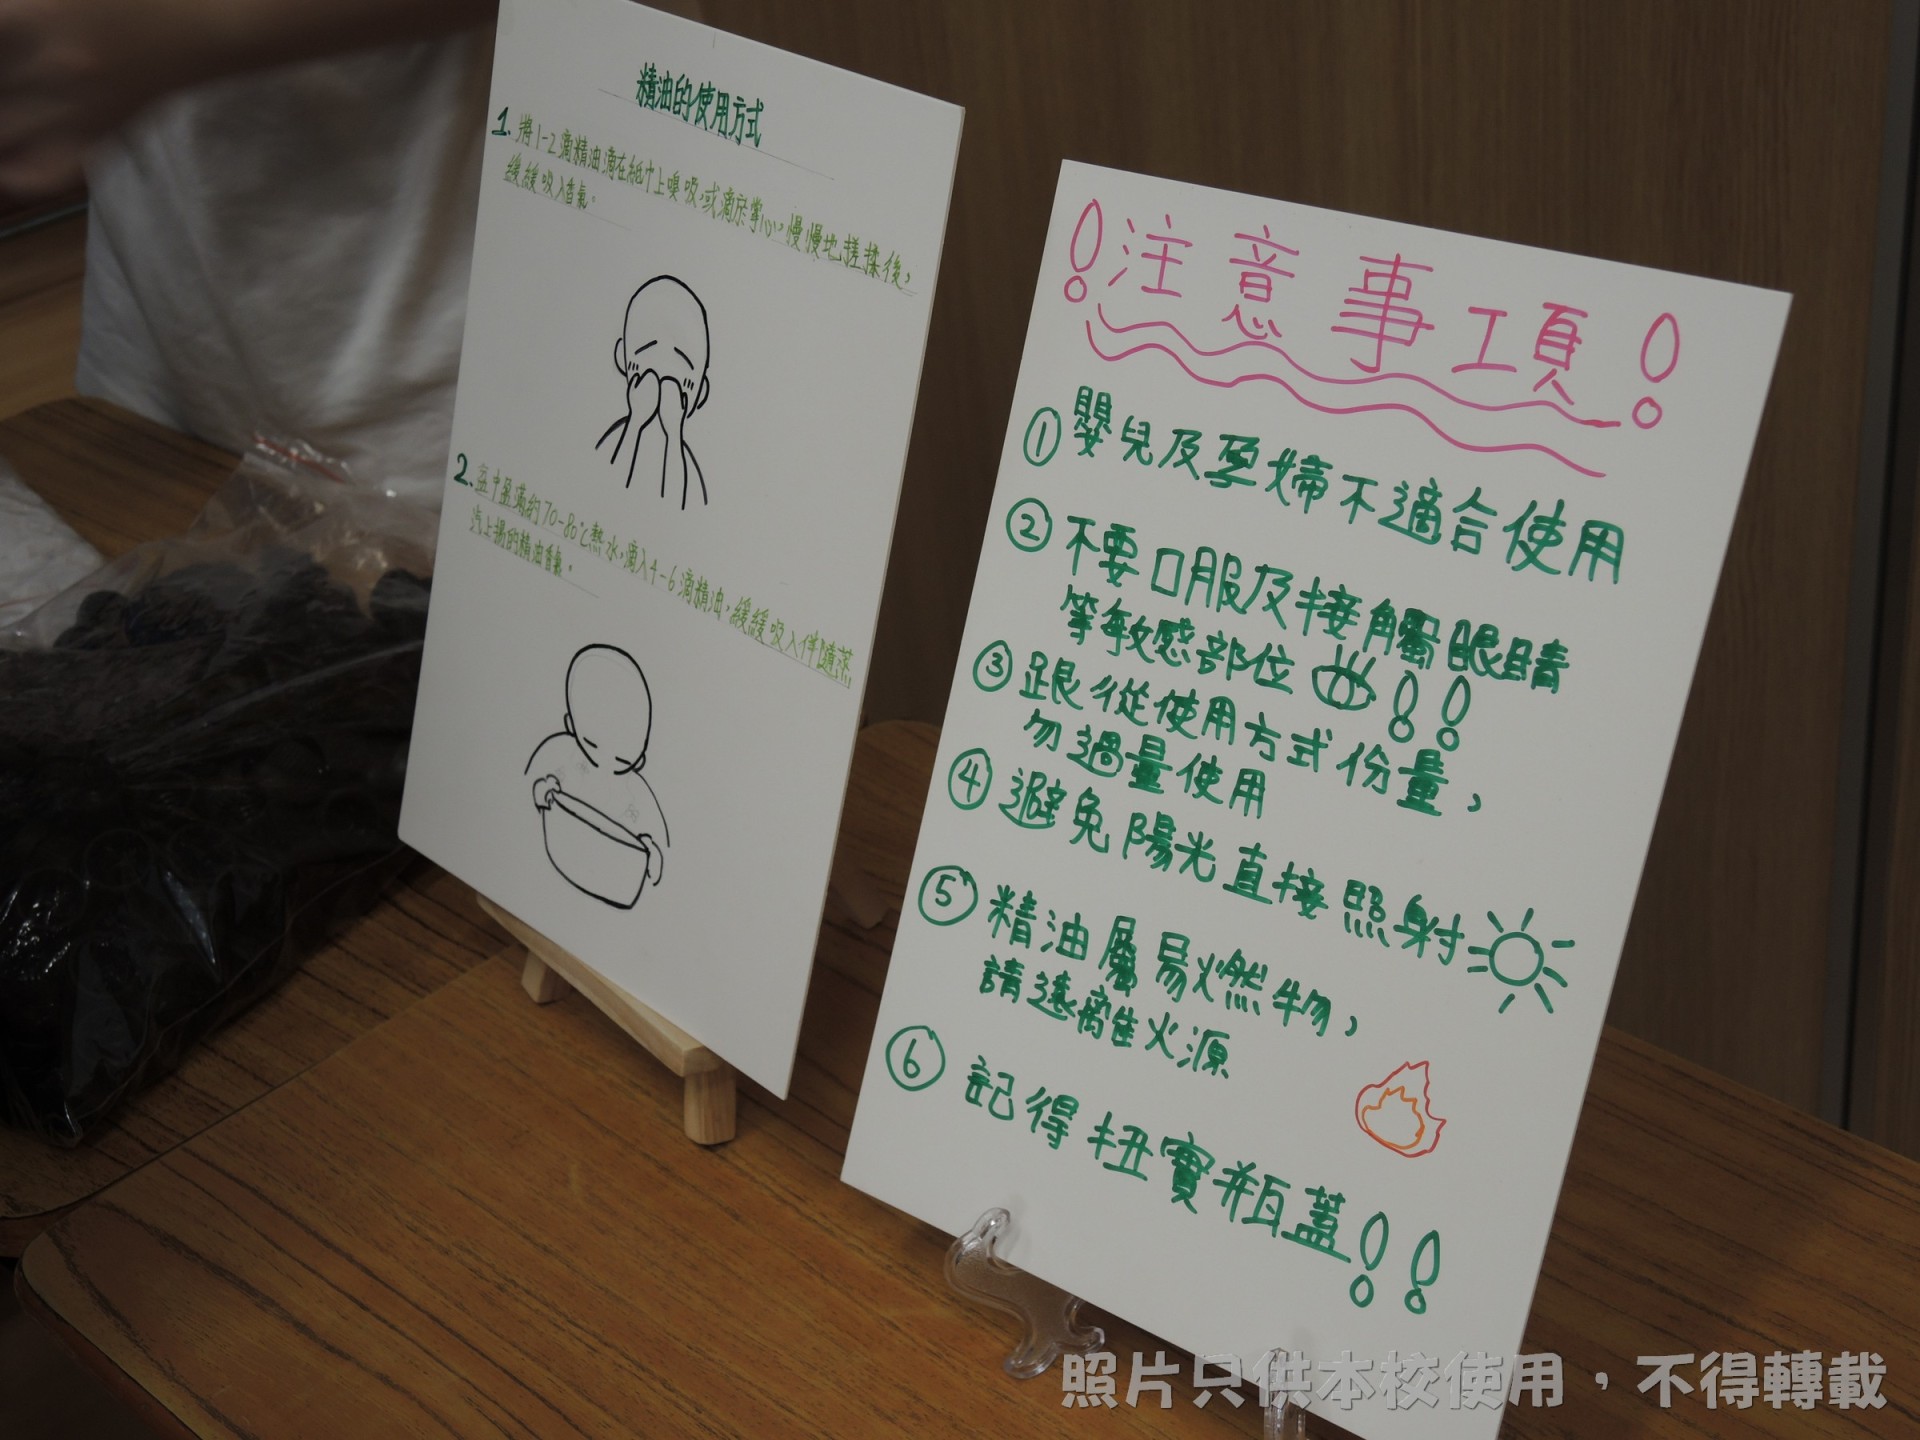 精油的使用方式
1. 將1-2滴精油滴在紙巾上嗅吸,或滴於掌心,慢慢地搓揉後,
緩緩吸入香氣。
2. 盆中盈滿約70-80℃熱水,滴入4-6滴精油,緩緩吸入伴隨蒸
汽上揚的精油香氣。
!注意事項!
① 嬰兒及孕婦不適合使用
② 不要口服及接觸眼睛
等敏感部位!!
③ 跟從使用方式份量,
勿過量使用
④ 避免陽光直接照射
⑤ 精油屬易燃物,
請遠離火源
⑥ 記得扭實瓶蓋!!
照片只供本校使用,不得轉載